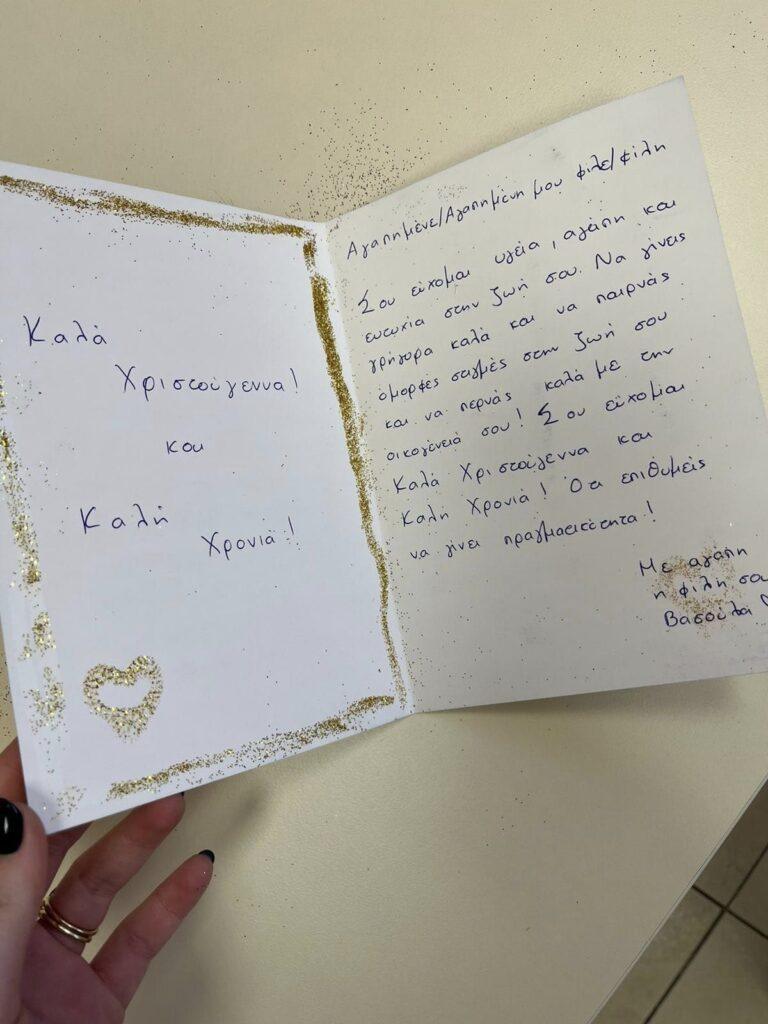 Καλά
Χριστούγεννα!
και
Καλή
Χρονιά!
Αγαπημένε/Αγαπημένη μου φίλε/φίλη
Σου εύχομαι υγεία, αγάπη και
ευτυχία στην ζωή σου. Να γίνεις
γρήγορα καλά και να παιρνάς
όμορφες στιγμές στην ζωή σου
και να περνάς καλά με την
οικογένειά σου! Σου εύχομαι
Καλά Χριστούγεννα και
Καλή Χρονιά! Ότι επιθυμείς
να γίνει πραγματικότητα!
Με αγάπη
η φίλη σου
Βασούλα ♡